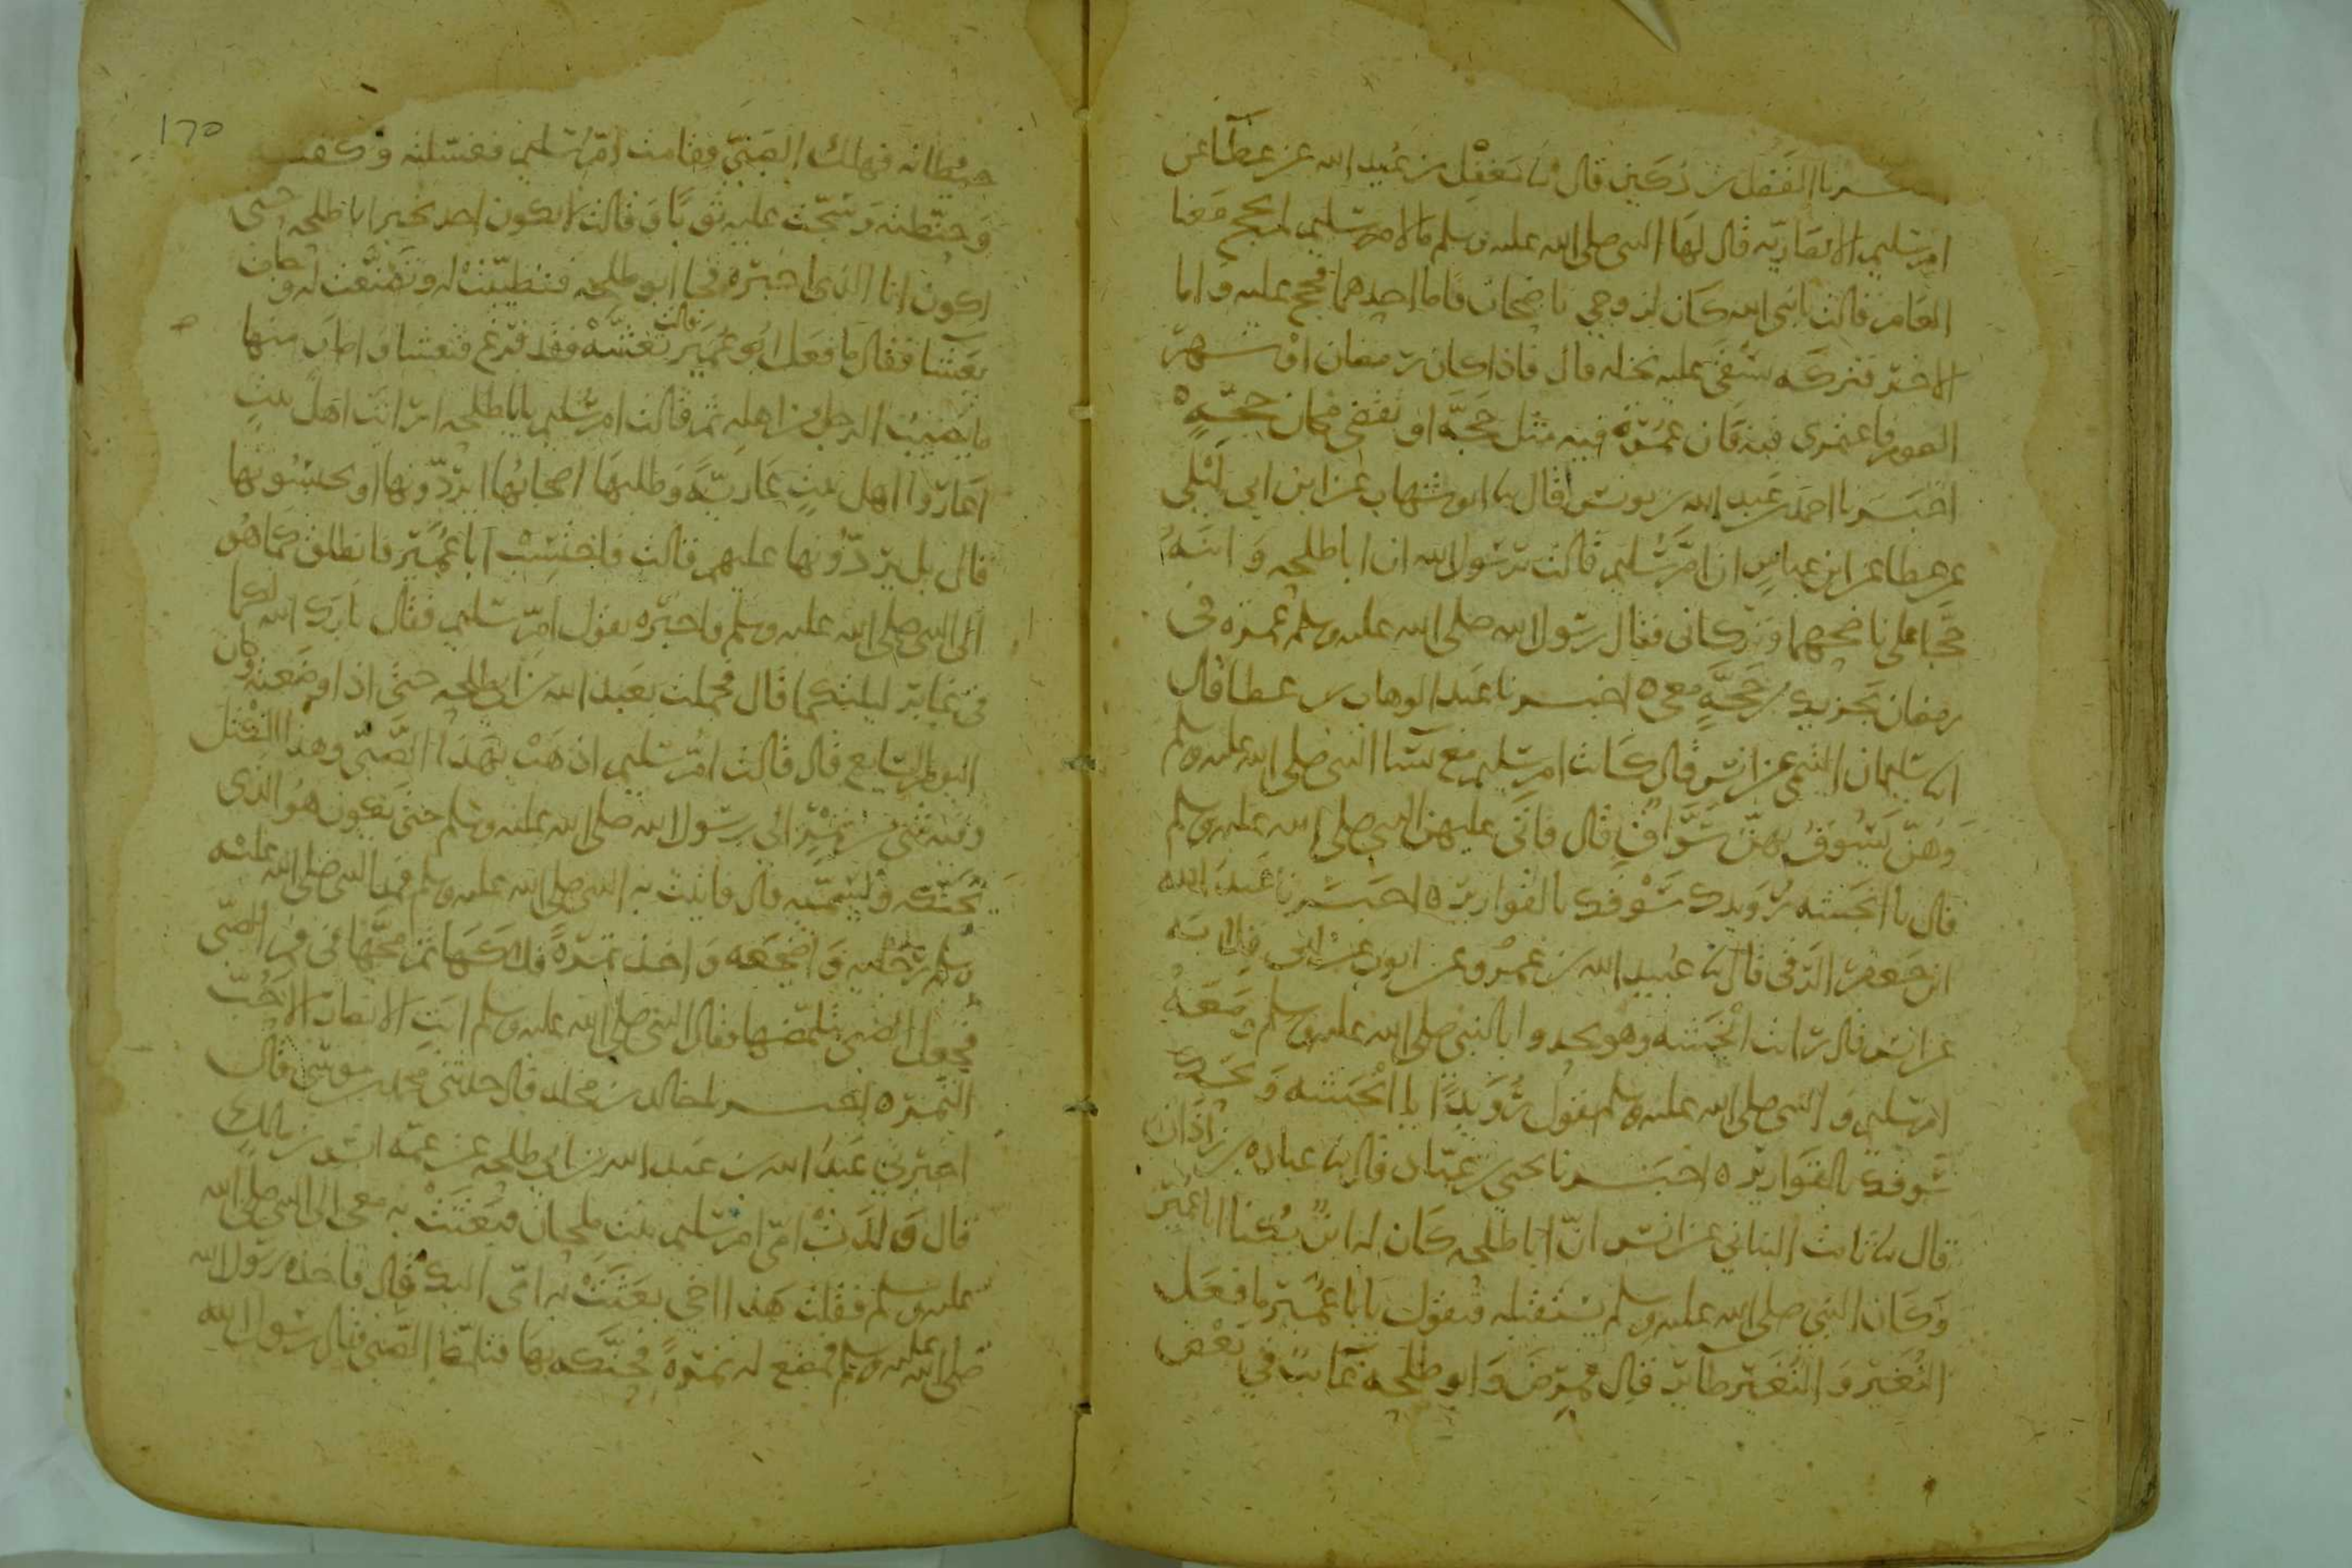 ـسرنا الفضل بن دُكَين قال نا مَعْقِل بن عُبيد الله عن عطآ عن
ام سليم الانصاريّه قال لها النبى صلى الله عليه وسلم ما لام سليم لم تحج معنا
العام قالت يا نبى الله كان لزوجي ناضحان فاما احدهما فحج عليه واما
الاخر فتركه يسقى عليه نخله قال فاذا كان رمضان او شهر
الصوم فاعتمرى فيه فان عمرة فيه مثل حَجَّة او تقضى مكان حجّةٍ ه
اخبرنا احمد بن عبد الله بن يونس قال نا ابو شهاب عن ابن ابي ليلى
عن عطا عن ابن عباس ان ام سُليم قالت يرسول الله ان ابا طلحه وابنَهُ
حَجّا على ناضحهما وتركانى فقال رسول الله صلى الله عليه وسلم عمره فى
رمضان تجزيك من حَجّةٍ معى ه اخبـرنا عبد الوهاب بن عطا قال
انا سليمان التيمى عن انس قال كانت ام سليم مع نسا النبى صلى الله عليه وسلم
وهُنّ يَسُوقُ بهنّ سَوَّاقٌ قال فاتى عليهن النبى صلى الله عليه وسلم
قال يا انجشه رُوَيدك سَوْقك بالقوارير ه اخبـرنا عبد الله
ابن جعفر الرَّقى قال نا عبيد الله بن عمرو عن ايوب عن ابى قلابه
عن انس قال رايت انجشه وهو يحدوا بالنبى صلى الله عليه وسلم ومَعَهُ
ام سليم والنبى صلى الله عليه وسلم يقول رُوَيْدًا يا انجشه ويحك
سوقك بالقوارير ه اخبَـرنا يحيى بن عبّاد قال نا عماره بن زاذان
قال نا ثابت البنانى عن انس انّ ابا طلحه كان له ابنٌ يُكنا ابا عُمَير
وكان النبي صلى الله عليه وسلم يستقبله فيقول يابا عُمَير ما فعل
النُّغير والنُّغير طآير قال فمرض وابو طلحه غايبٌ في بَعْض
١٢٥
حيطانه فهلك الصبيّ فقامت ام سليم فغسّلته وكفنـ
وحنّطته وسجّت عليه ثوبًا وقالت لا يكون احد يخبر ابا طلحه حتى
اكون انا الذى اخبره فجا ابو طلحه فتطيّبت له وتصنّعت له وجات
بعَشا فقال ما فعل ابو عُمَير قالت تعشّه فقد فرغ فتعشا واصاب منها
ما يصيب الرجل من اهله ثم قالت ام سليم يابا طلحه ارايت اهل بيتٍ
اعاروا اهل بيتٍ عاريّةً وطلبها اصحابُها ايردّونها او يحبسُونها
قال بل يردّونها عليهم قالت فاحتسِبْ ابا عُمَير فانطلق كما هُو
الى النبي صلى الله عليه وسلم واخبره بقول ام سليم فقال بارك الله لكما
فى غابر ليلتكما قال فحملت بعبد الله بن ابى طلحه حتى اذا وضَعَتْه وكان
اليوم السّابع قال قالت ام سليم اذهَبْ بهذا الصَّبىّ وهذا المِكْتَل
وفيه شىٌ من تَمْرٍ الى رسول الله صلى الله عليه وسلم حتى يكون هُو الذى
يحنّكه ويسمّيه قال فاتيت به النبي صلى الله عليه وسلم فمد النبى صلى الله عليه
وسلم رجليه واضجعه واخذ تمرةً فلاكَها ثم مَجَّها فى فِي الصّبى
فجعل الصبى يتلمّظها فقال النبى صلى الله عليه وسلم ابَتِ الانصار الا حُبّ
التّمر ه اخبـرنا خالد بن مخلد قال حدثنى محمد بن موسى قال
اخبرني عبدُ الله بن عبد الله بن ابى طلحه عن عمّه انس بن مالك
قال وَلَدَتْ امّى ام سليم بنت ملحان فبَعَثَتْ به معي الى النبى صلى الله
عليه وسلم فقلت هَذا اخى بعَثَتْ به امّى اليك قال فاخذه رسول الله
صلى الله عليه وسلم فمضغ له تمرةً فحنّكه بها فتلمّظ الصّبىّ فقال رسول الله